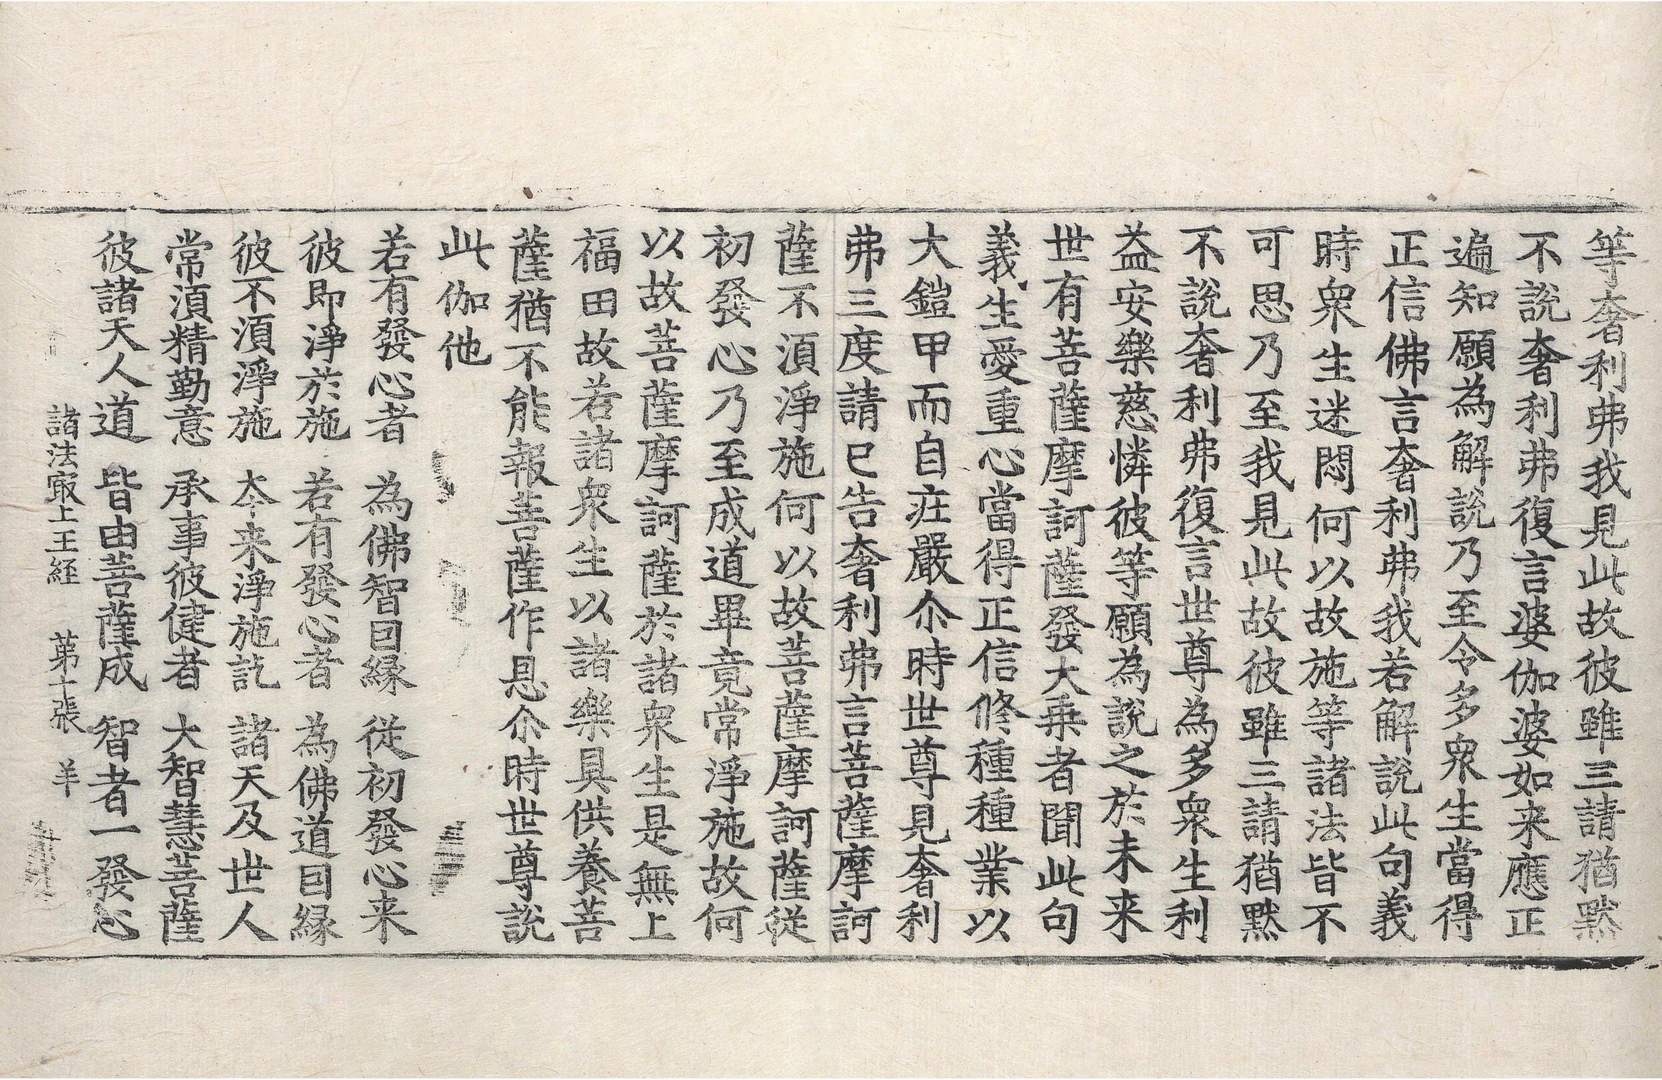 等奢利弗我見此故彼雖三請猶黙
不說奢利弗復言婆伽婆如来應正
遍知願為解說乃至令多衆生當得
正信佛言奢利弗我若解說此句義
時衆生迷悶何以故施等諸法皆不
可思乃至我見此故彼雖三請猶黙
不說奢利弗復言世尊為多衆生利
益安樂慈憐彼等願為說之於未来
世有菩薩摩訶薩發大乗者聞此句
義生愛重心當得正信修種種業以
大鎧甲而自庄嚴尒時世尊見奢利
弗三度請已告奢利弗言菩薩摩訶
薩不湏淨施何以故菩薩摩訶薩従
初發心乃至成道畢竟常淨施故何
以故菩薩摩訶薩於諸衆生是無上
福田故若諸衆生以諸樂具供養菩
薩猶不能報菩薩作恩尒時世尊說
此伽他
若有發心者　為佛智回縁　従初發心来
彼即淨於施　若有發心者　為佛道回縁
彼不湏淨施　夲来淨施訖　諸天及世人
常湏精勤意　承事彼健者　大智慧菩薩
彼諸天人道　皆由菩薩成　智者一發心
諸法㝡上王経　第十張　羊